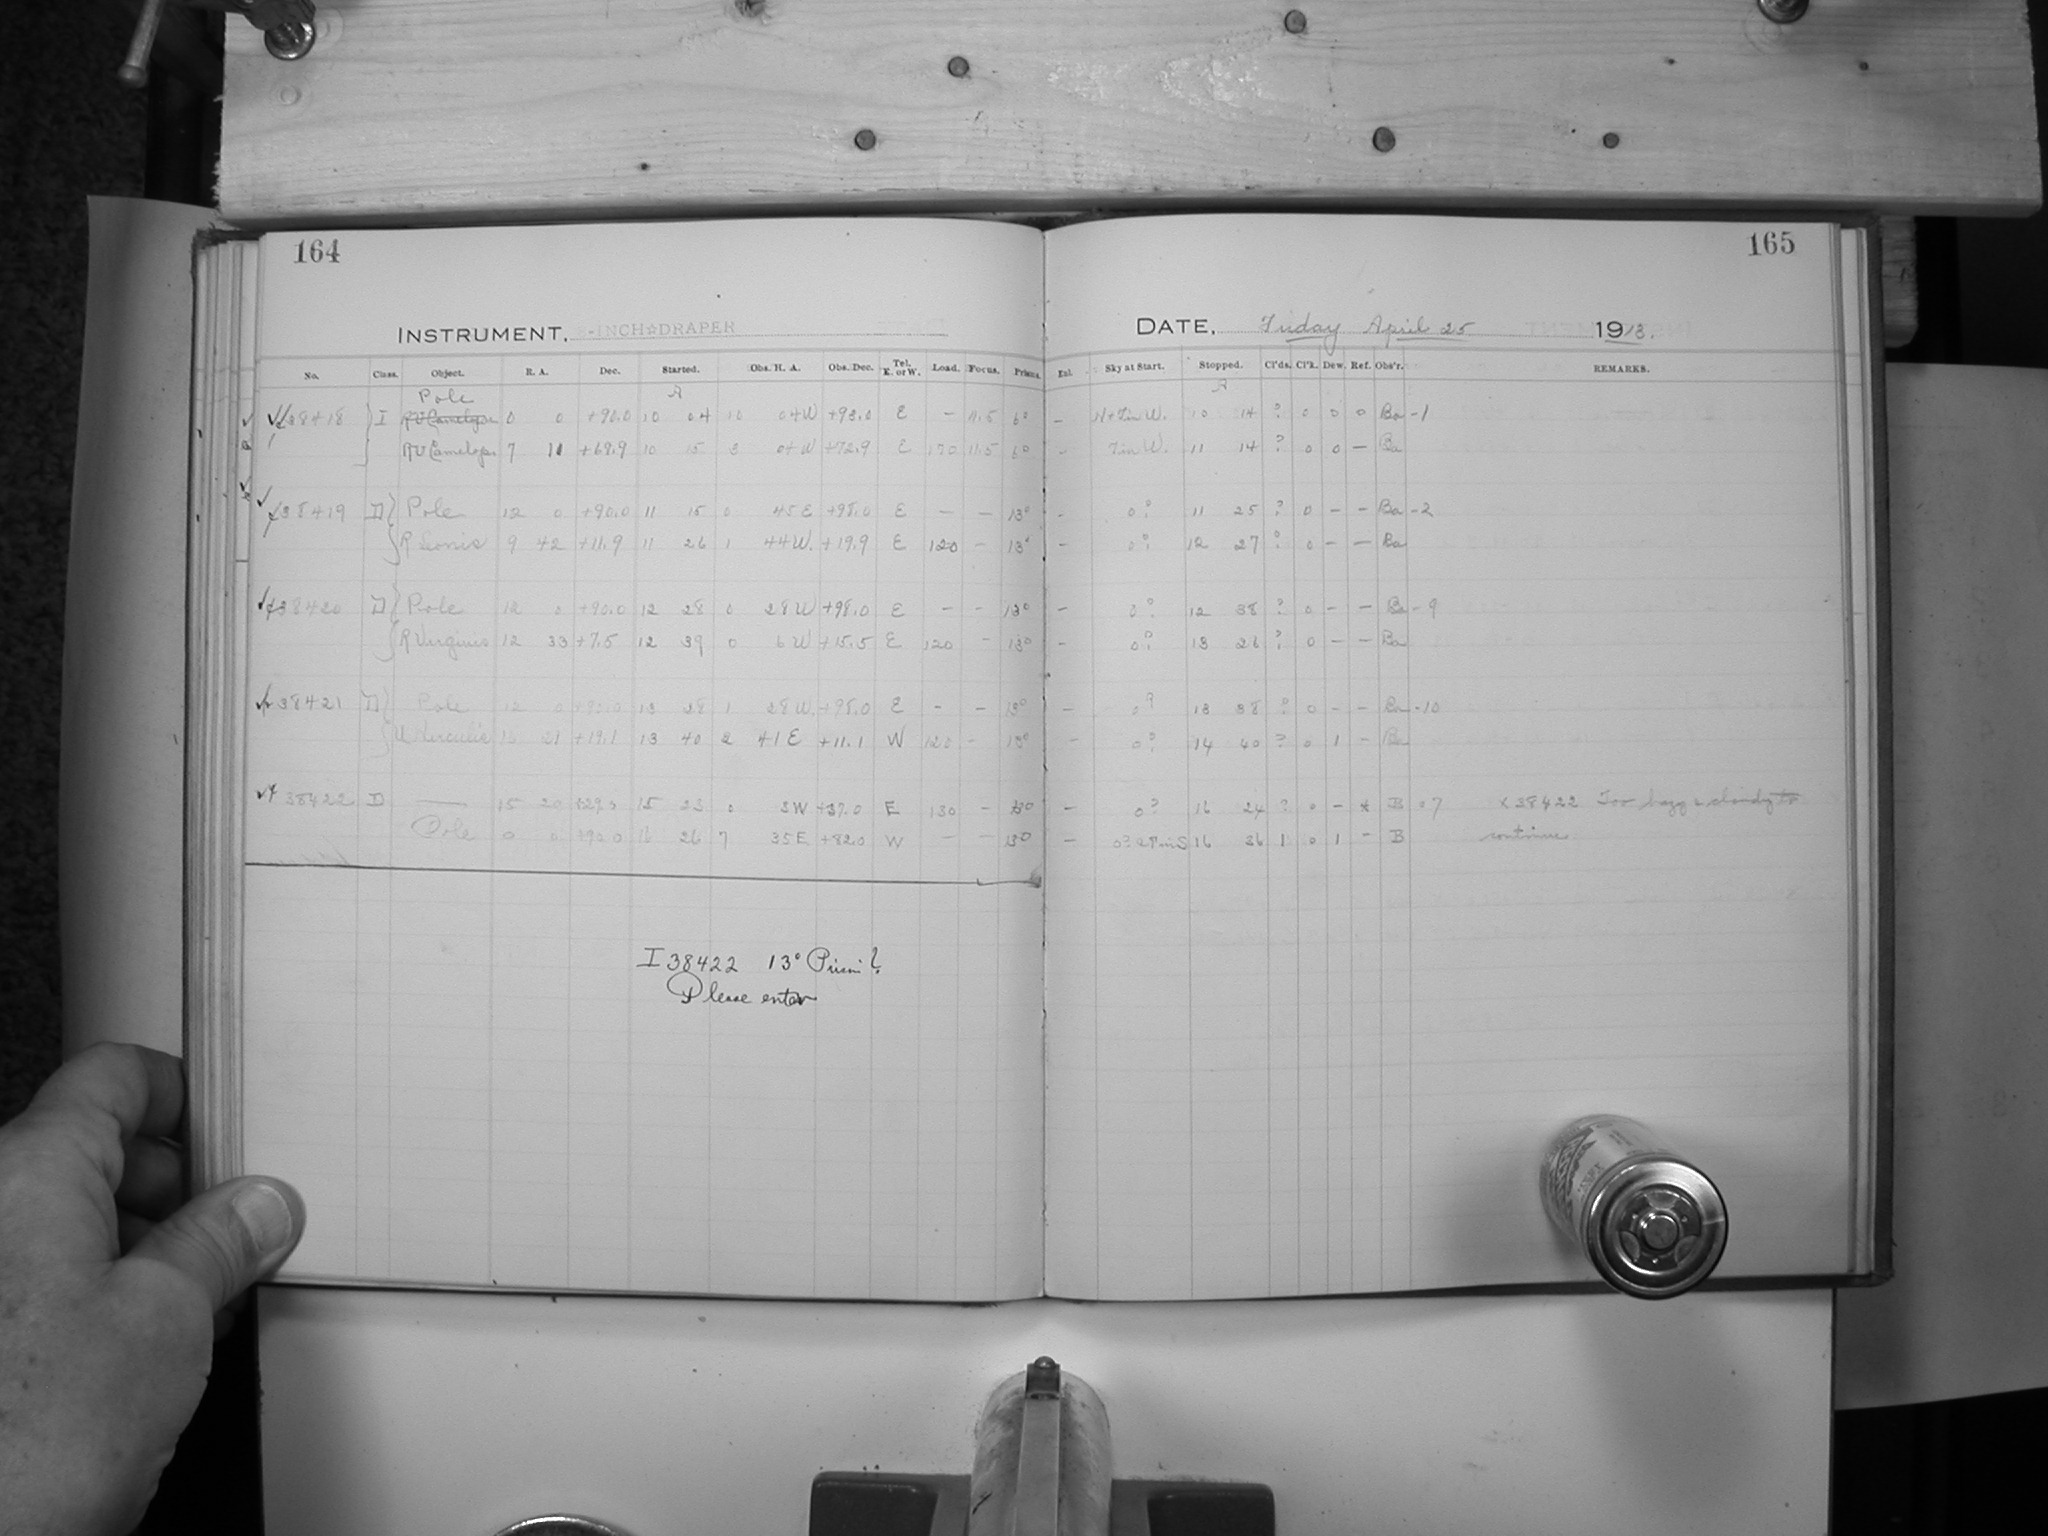 164
165
INSTRUMENT, 8-INCH☆DRAPER
DATE, Friday April 25 1913.
No. Class. Object. R. A. Dec. Started. Obs. H. A. Obs. Dec. Tel. E. or W. Load. Focus. Prism.
Exl. Sky at Start. Stopped. Cl'ds. Cl'k. Dew. Ref. Obs'r. REMARKS.
Pole
38418 I 0 0 +90.0 10 04 10 04W +98.0 E — 11.5 6° — 10 14 ? 0 0 0 Ba -1
RU Camelop. 7 11 +69.9 10 15 3 04 W +72.9 E 170 11.5 6° - 11 14 ? 0 0 — Ba
38419 D Pole 12 0 +90.0 11 15 0 45 E +98.0 E — — 13° - 0? 11 25 ? 0 — — Ba -2
R Leonis 9 42 +11.9 11 26 1 44 W. +19.9 E 120 - 13° - 0? 12 27 ? 0 — — Ba
38420 D Pole 12 0 +90.0 12 28 0 28 W +98.0 E — - 13° — 0? 12 38 ? 0 — — Ba - 9
R Virginis 12 33 +7.5 12 39 0 6 W +15.5 E 120 - 13° — 0? 13 26 ? 0 — — Ba
38421 D Pole 12 0 +90.0 13 28 1 28 W. +98.0 E - — 13° — 0? 13 38 ? 0 - - Ba -10
U Herculis 16 21 +19.1 13 40 2 41 E +11.1 W 120 - 13° — 0? 14 40 ? 0 1 - Ba
38422 D — 15 20 15 23 0 3W +37.0 E 130 - 13° — 0? 16 24 ? 0 - B 07 38422 Too hazy & cloudy to
Pole 0 0 +90.0 16 26 7 35 E +82.0 W — — 13° — 16 36 1 0 1 - B continue
I 38422 13° Prism?
Please enter